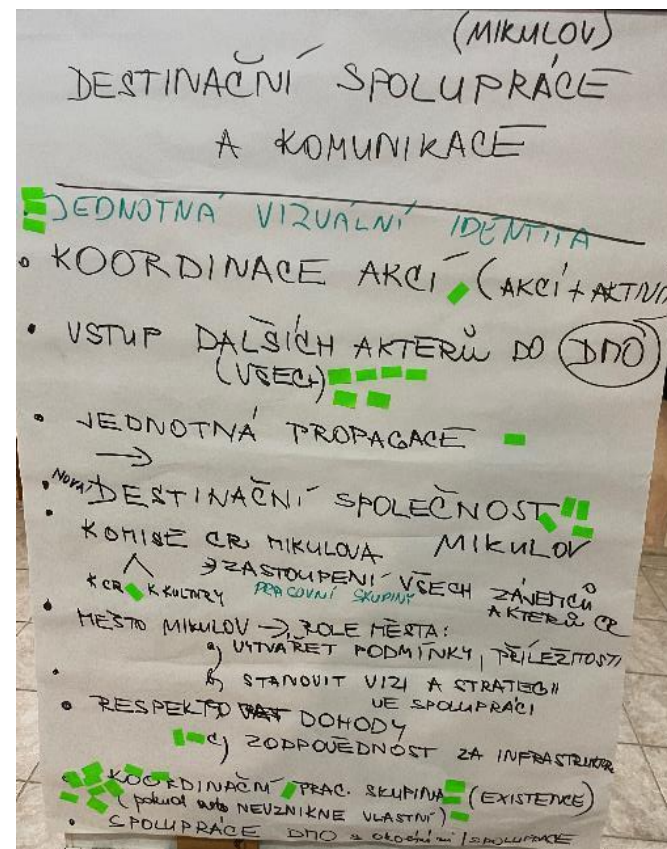 (MIKULOV)
DESTINAČNÍ SPOLUPRÁCE
A KOMUNIKACE
JEDNOTNÁ VIZUÁLNÍ IDENTITA
• KOORDINACE AKCÍ, (AKCÍ + AKTIVI
• VSTUP DALŠÍCH AKTERŮ DO DMO
(VŠECH)
• JEDNOTNÁ PROPAGACE
→
• NOVÁ DESTINAČNÍ SPOLEČNOST
MIKULOV
• KOMISE CR MIKULOVA
→ ZASTOUPENÍ VŠECH ZÁJEMCŮ
AKTERŮ CR
K CR K KULTURY PRACOVNÍ SKUPINY
• MĚSTO MIKULOV → ROLE MĚSTA:
a) VYTVÁŘET PODMÍNKY, PŘÍLEŽITOSTI
b) STANOVIT VIZI A STRATEGII
VE SPOLUPRÁCI
• RESPEKT DOHODY
c) ZODPOVĚDNOST ZA INFRASTRUKTUR
• KOORDINAČNÍ PRAC. SKUPINA (EXISTENCE)
(pokud NEVZNIKNE VLASTNÍ)
• SPOLUPRÁCE DMO s okolními / SPOLUPRÁCE